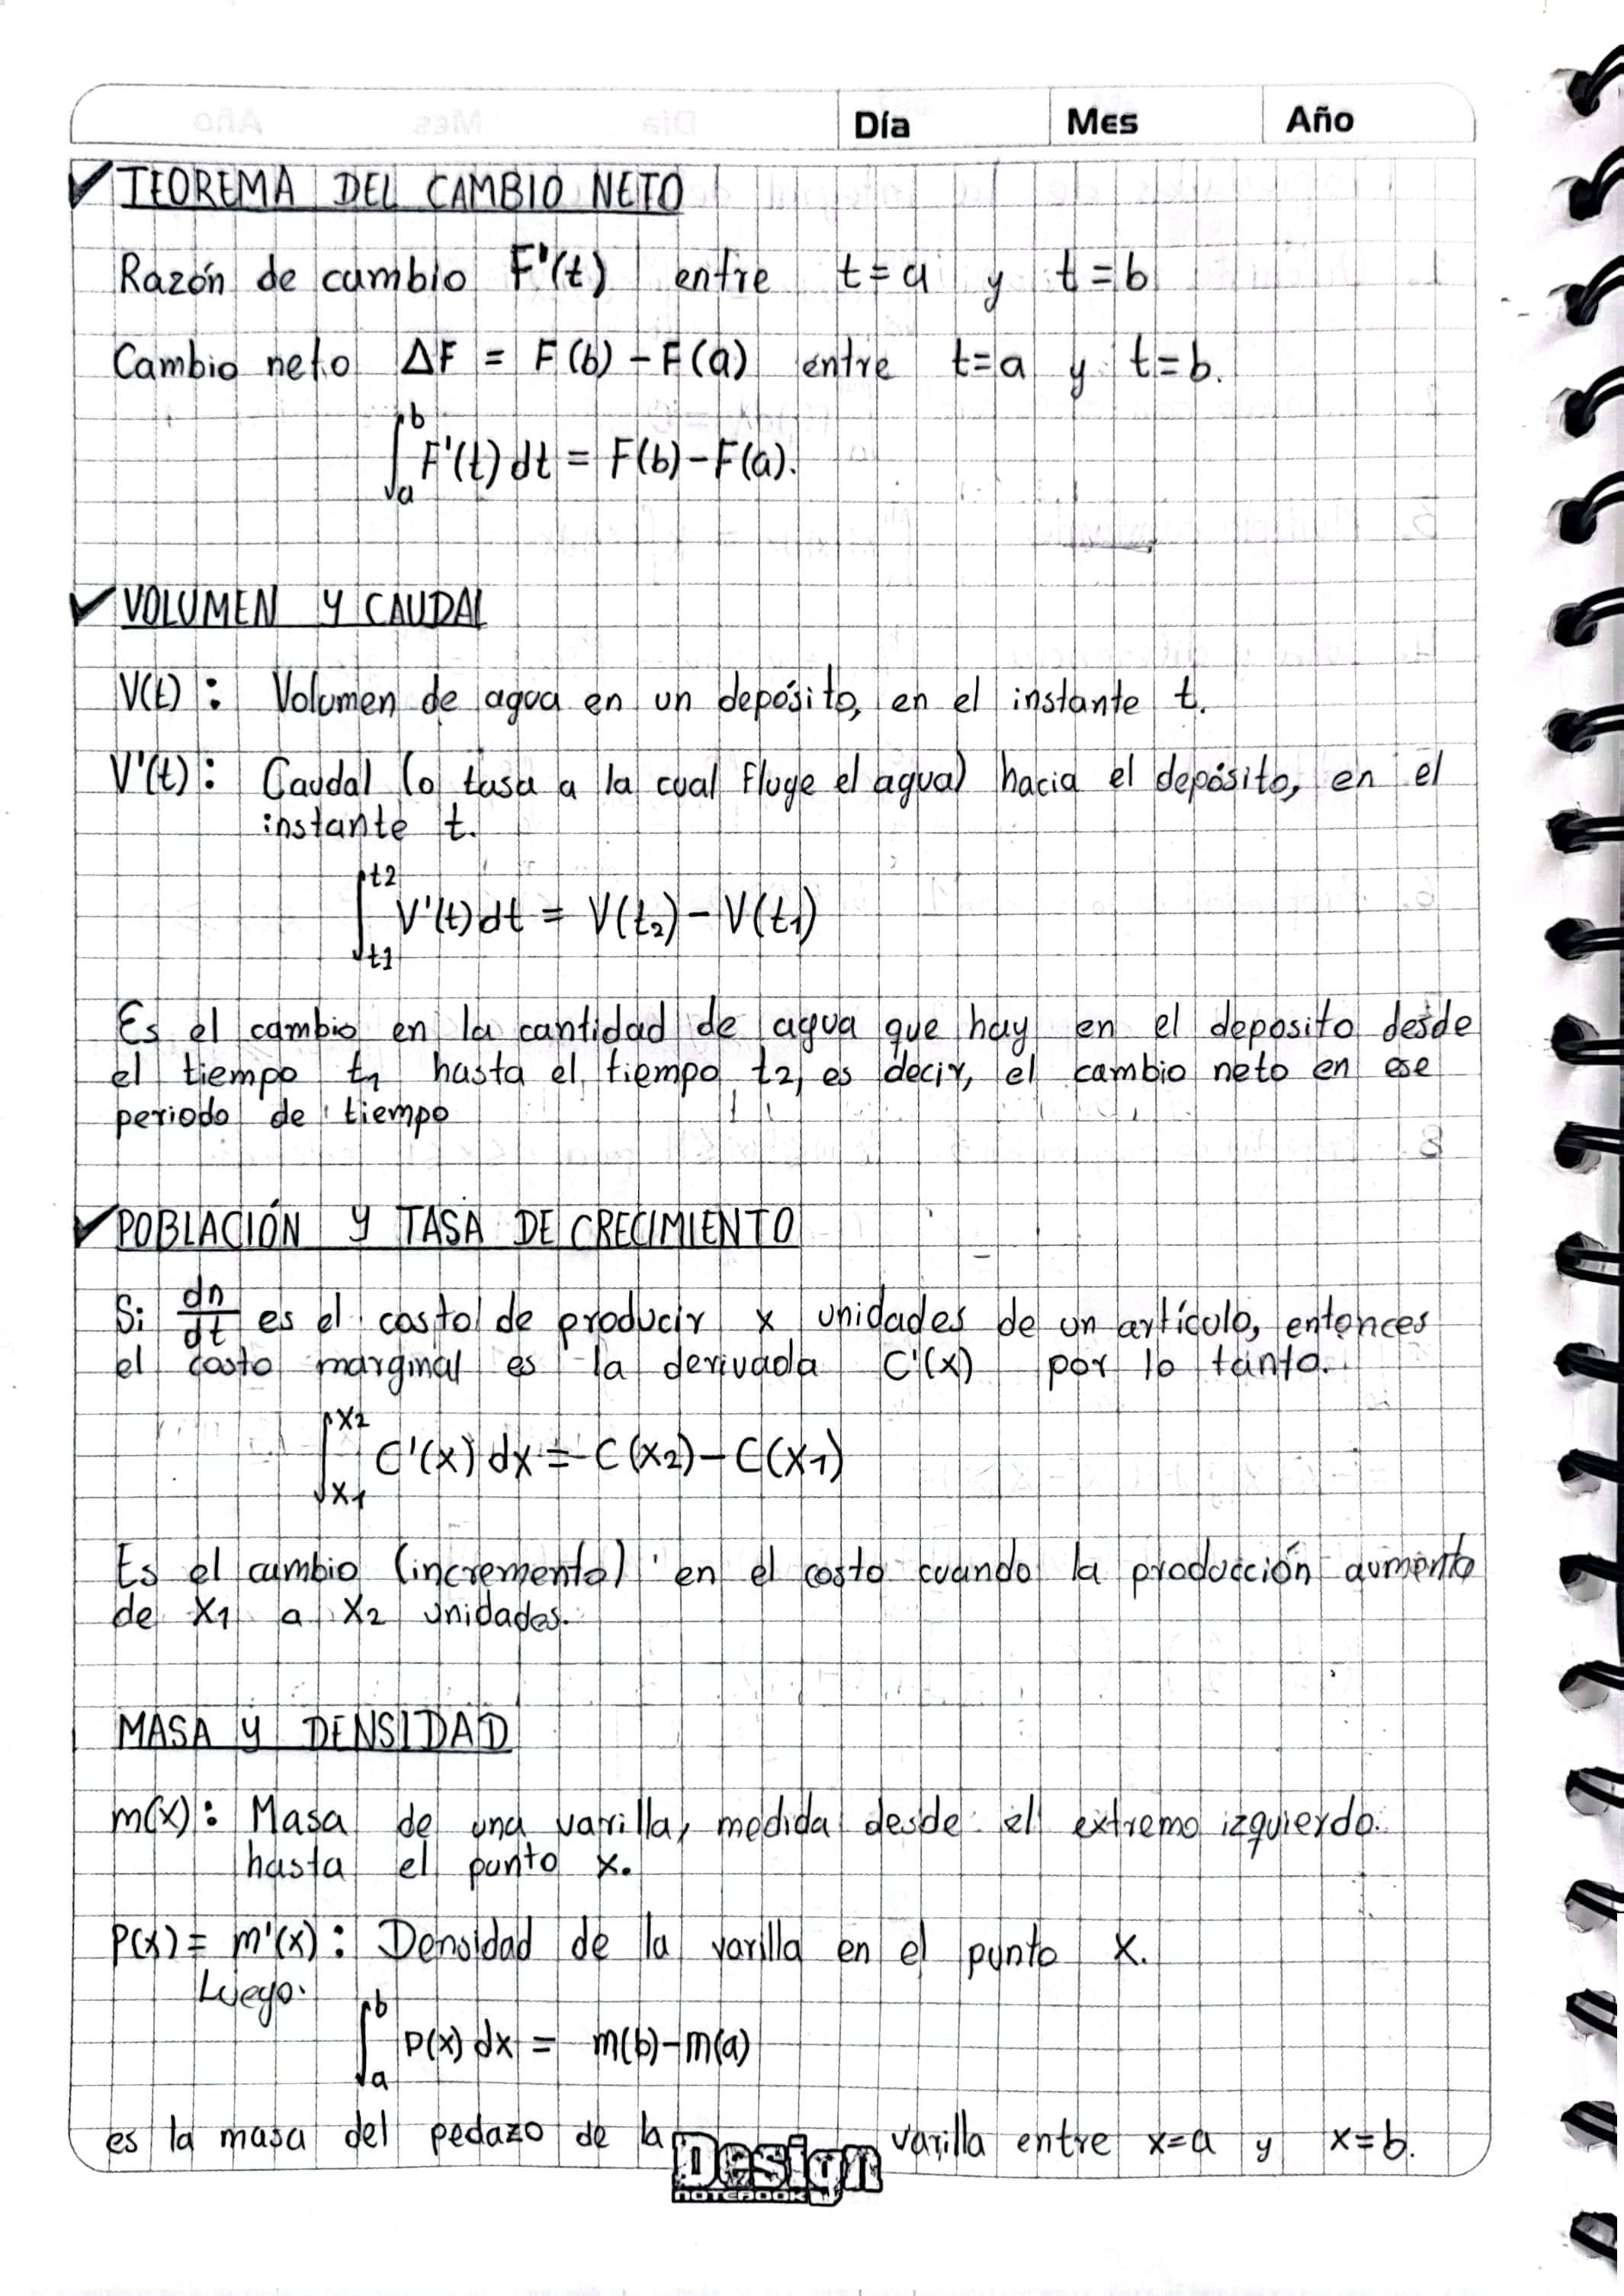 Día Mes Año
✓ TEOREMA DEL CAMBIO NETO
Razón de cambio F'(t) entre t=a y t=b
Cambio neto ΔF = F(b) - F(a) entre t=a y t=b.
∫_a^b F'(t) dt = F(b) - F(a).
✓ VOLUMEN Y CAUDAL
V(t): Volumen de agua en un depósito, en el instante t.
V'(t): Caudal (o tasa a la cual fluye el agua) hacia el depósito, en el
instante t.
∫_t1^t2 V'(t) dt = V(t₂) - V(t₁)
Es el cambio en la cantidad de agua que hay en el deposito desde
el tiempo t₁ hasta el tiempo t₂, es decir, el cambio neto en ese
periodo de tiempo
✓ POBLACIÓN Y TASA DE CRECIMIENTO
Si dn/dt es el costo de producir x unidades de un artículo, entonces
el costo marginal es la derivada C'(x) por lo tanto.
∫_x1^x2 C'(x) dx = C(x₂) - C(x₁)
Es el cambio (incremento) en el costo cuando la producción aumenta
de x₁ a x₂ unidades.
MASA Y DENSIDAD
m(x): Masa de una varilla, medida desde el extremo izquierdo.
hasta el punto x.
P(x) = m'(x): Densidad de la varilla en el punto x.
Luego.
∫_a^b P(x) dx = m(b) - m(a)
es la masa del pedazo de la varilla entre x=a y x=b.
Design
NOTEBOOK